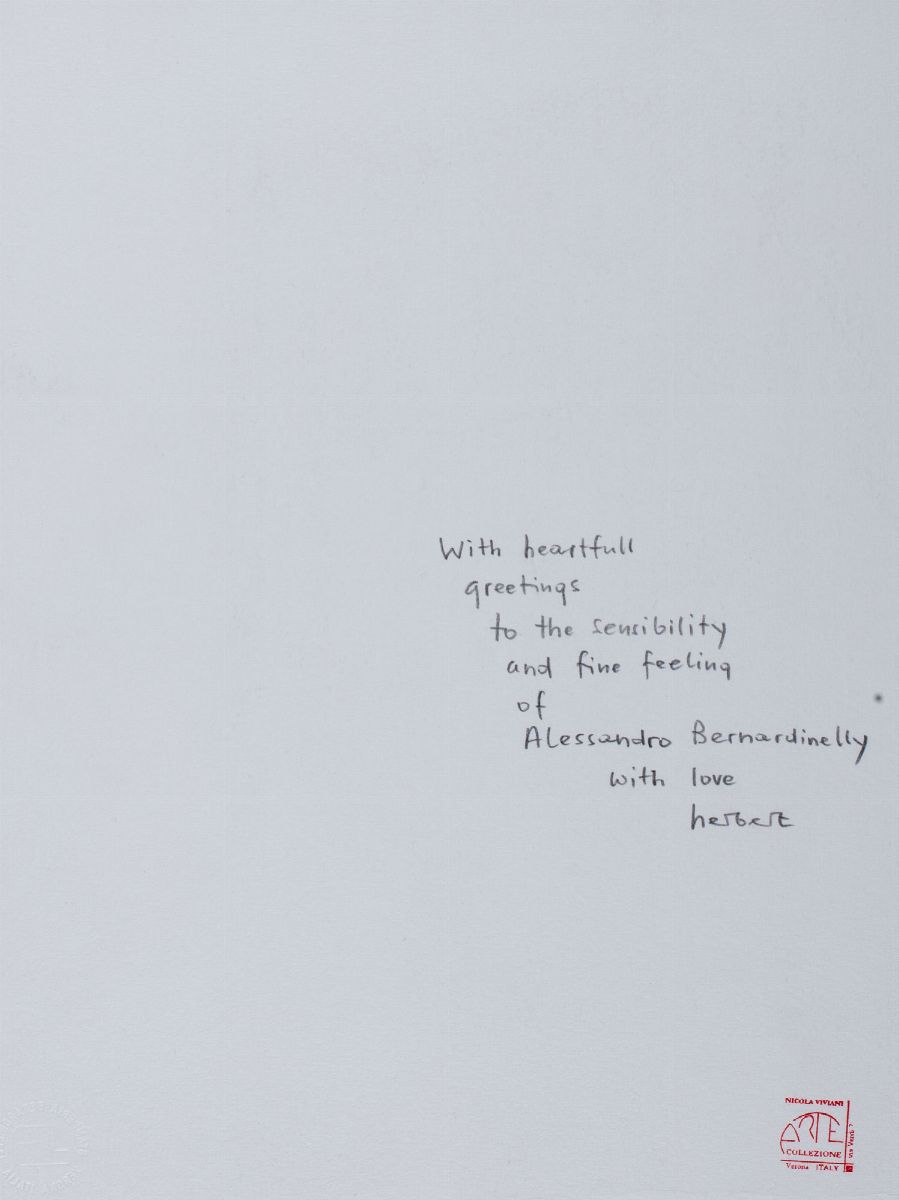 With heartfull
greetings
to the sensibility
and fine feeling
of
Alessandro Bernardinelly
with love
herbert
NICOLA VIVIANI
ARTE
COLLEZIONE
Verona ITALY